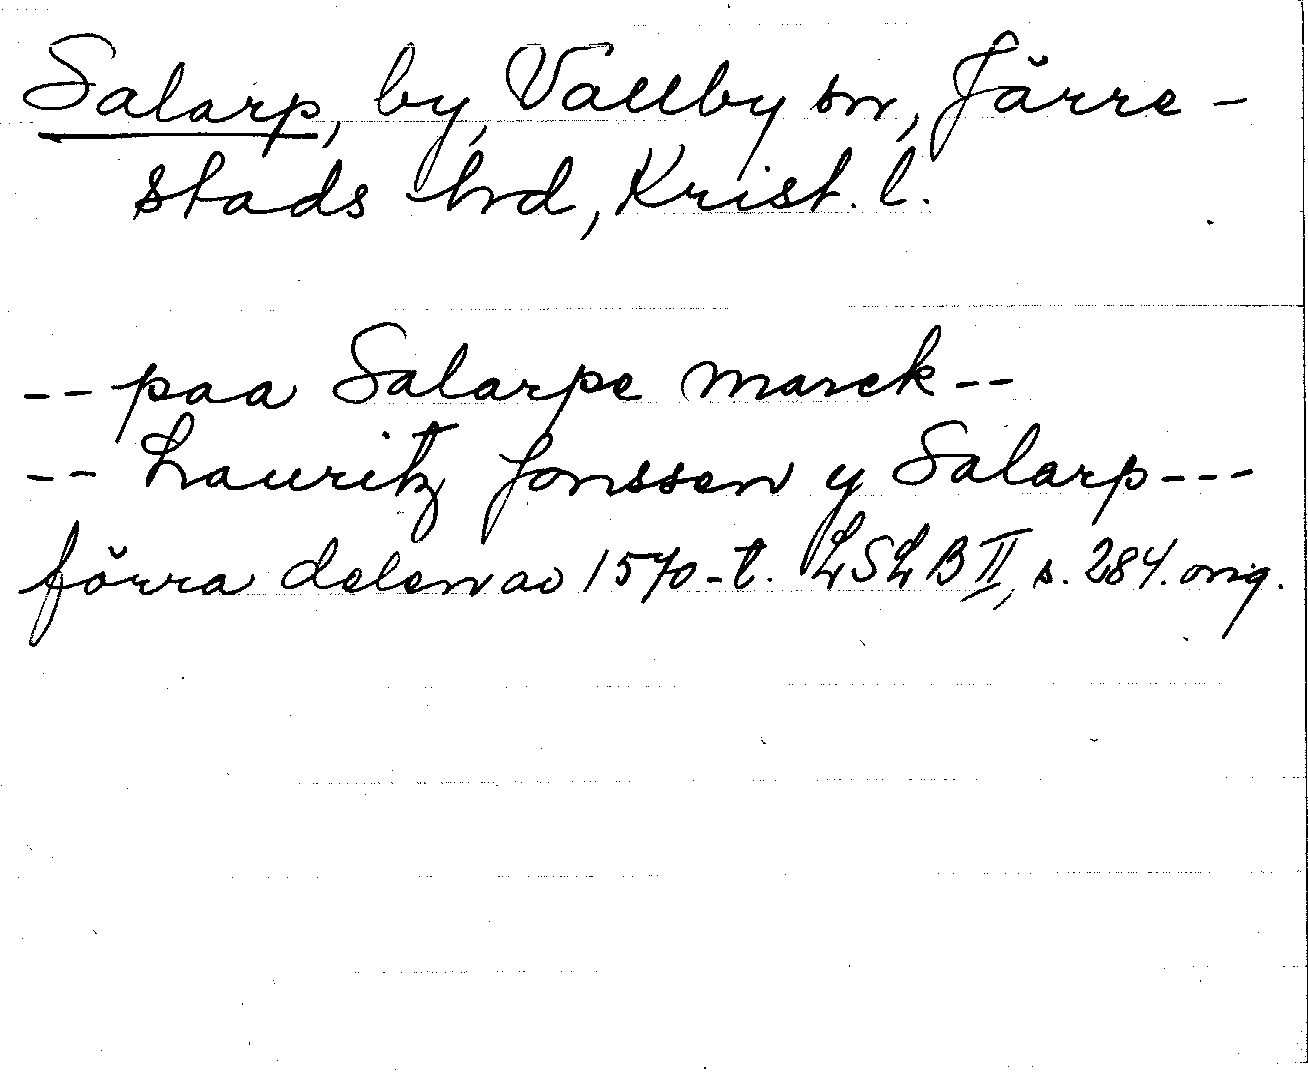 Salarp, by, Vallby sn, Järre-
stads hrd, Krist. l.
-- paa Salarpe marck --
-- Lauritz Jonssen y Salarp ---
förra delen av 1570-t. LSLB II, s. 284. orig.